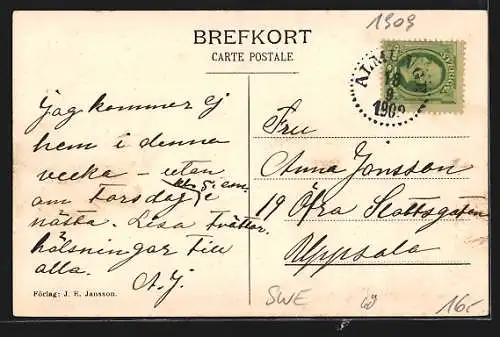 1909
BREFKORT
CARTE POSTALE
1909
Jag kommer ej
hem i denna
vecka – utan
kl. 5. em.
om Torsdag i
nästa. Lisa tvättar.
hälsningar till
alla.
A. J.
Fru
Anna Jonsson
19 Öfra Slottsgatan
Uppsala
Förlag: J. E. Jansson.
SWE
16.-